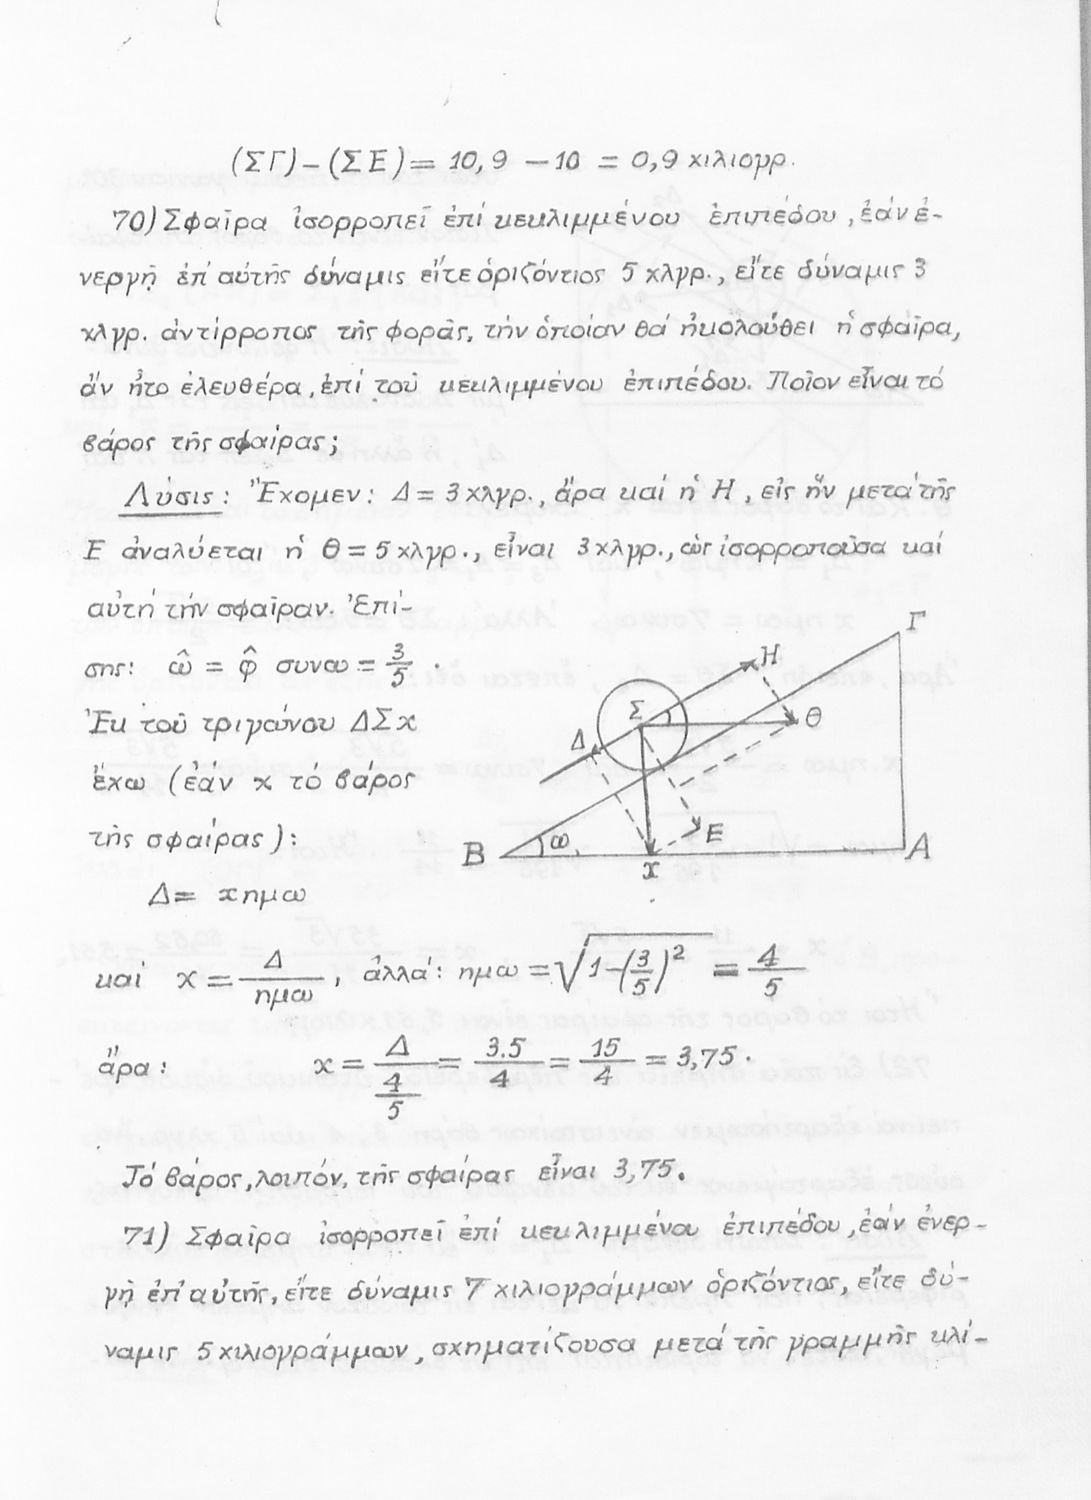 (ΣΓ) – (ΣΕ) = 10,9 – 10 = 0,9 χιλιογρ.
70) Σφαῖρα ἰσορροπεῖ ἐπί κεκλιμμένου ἐπιπέδου, ἐάν ἐ-
νεργῇ ἐπ' αὐτῆς δύναμις εἴτε ὁριζόντιος 5 χλγρ., εἴτε δύναμις 3
χλγρ. ἀντίρροπος τῆς φορᾶς, τήν ὁποίαν θά ἠκολούθει ἡ σφαῖρα,
ἄν ἦτο ἐλευθέρα, ἐπί τοῦ κεκλιμμένου ἐπιπέδου. Ποῖον εἶναι τό
βάρος τῆς σφαίρας;
Λύσις: Ἔχομεν: Δ = 3 χλγρ., ἄρα καί ἡ Η, εἰς ἥν μετά τῆς
Ε ἀναλύεται ἡ Θ = 5 χλγρ., εἶναι 3 χλγρ., ὡς ἰσορροποῦσα καί
αὐτή τήν σφαῖραν. Ἐπί-
σης: ω̂ = φ̂ συνω = 3/5 .
Ἐκ τοῦ τριγώνου ΔΣχ
ἔχω (ἐάν χ τό βάρος
τῆς σφαίρας):
Δ = χ ημω
Γ
Η
Σ
Θ
Δ
Ε
Β
ω
Α
χ
καί χ = Δ/ημω , ἀλλά: ημω = √1-(3/5)² = 4/5
ἄρα: χ = Δ/(4/5) = 3.5/4 = 15/4 = 3,75.
Τό βάρος, λοιπόν, τῆς σφαίρας εἶναι 3,75.
71) Σφαῖρα ἰσορροπεῖ ἐπί κεκλιμμένου ἐπιπέδου, ἐάν ἐνερ-
γῇ ἐπ' αὐτῆς, εἴτε δύναμις 7 χιλιογράμμων ὁριζόντιος, εἴτε δύ-
ναμις 5 χιλιογράμμων, σχηματίζουσα μετά τῆς γραμμῆς κλί-